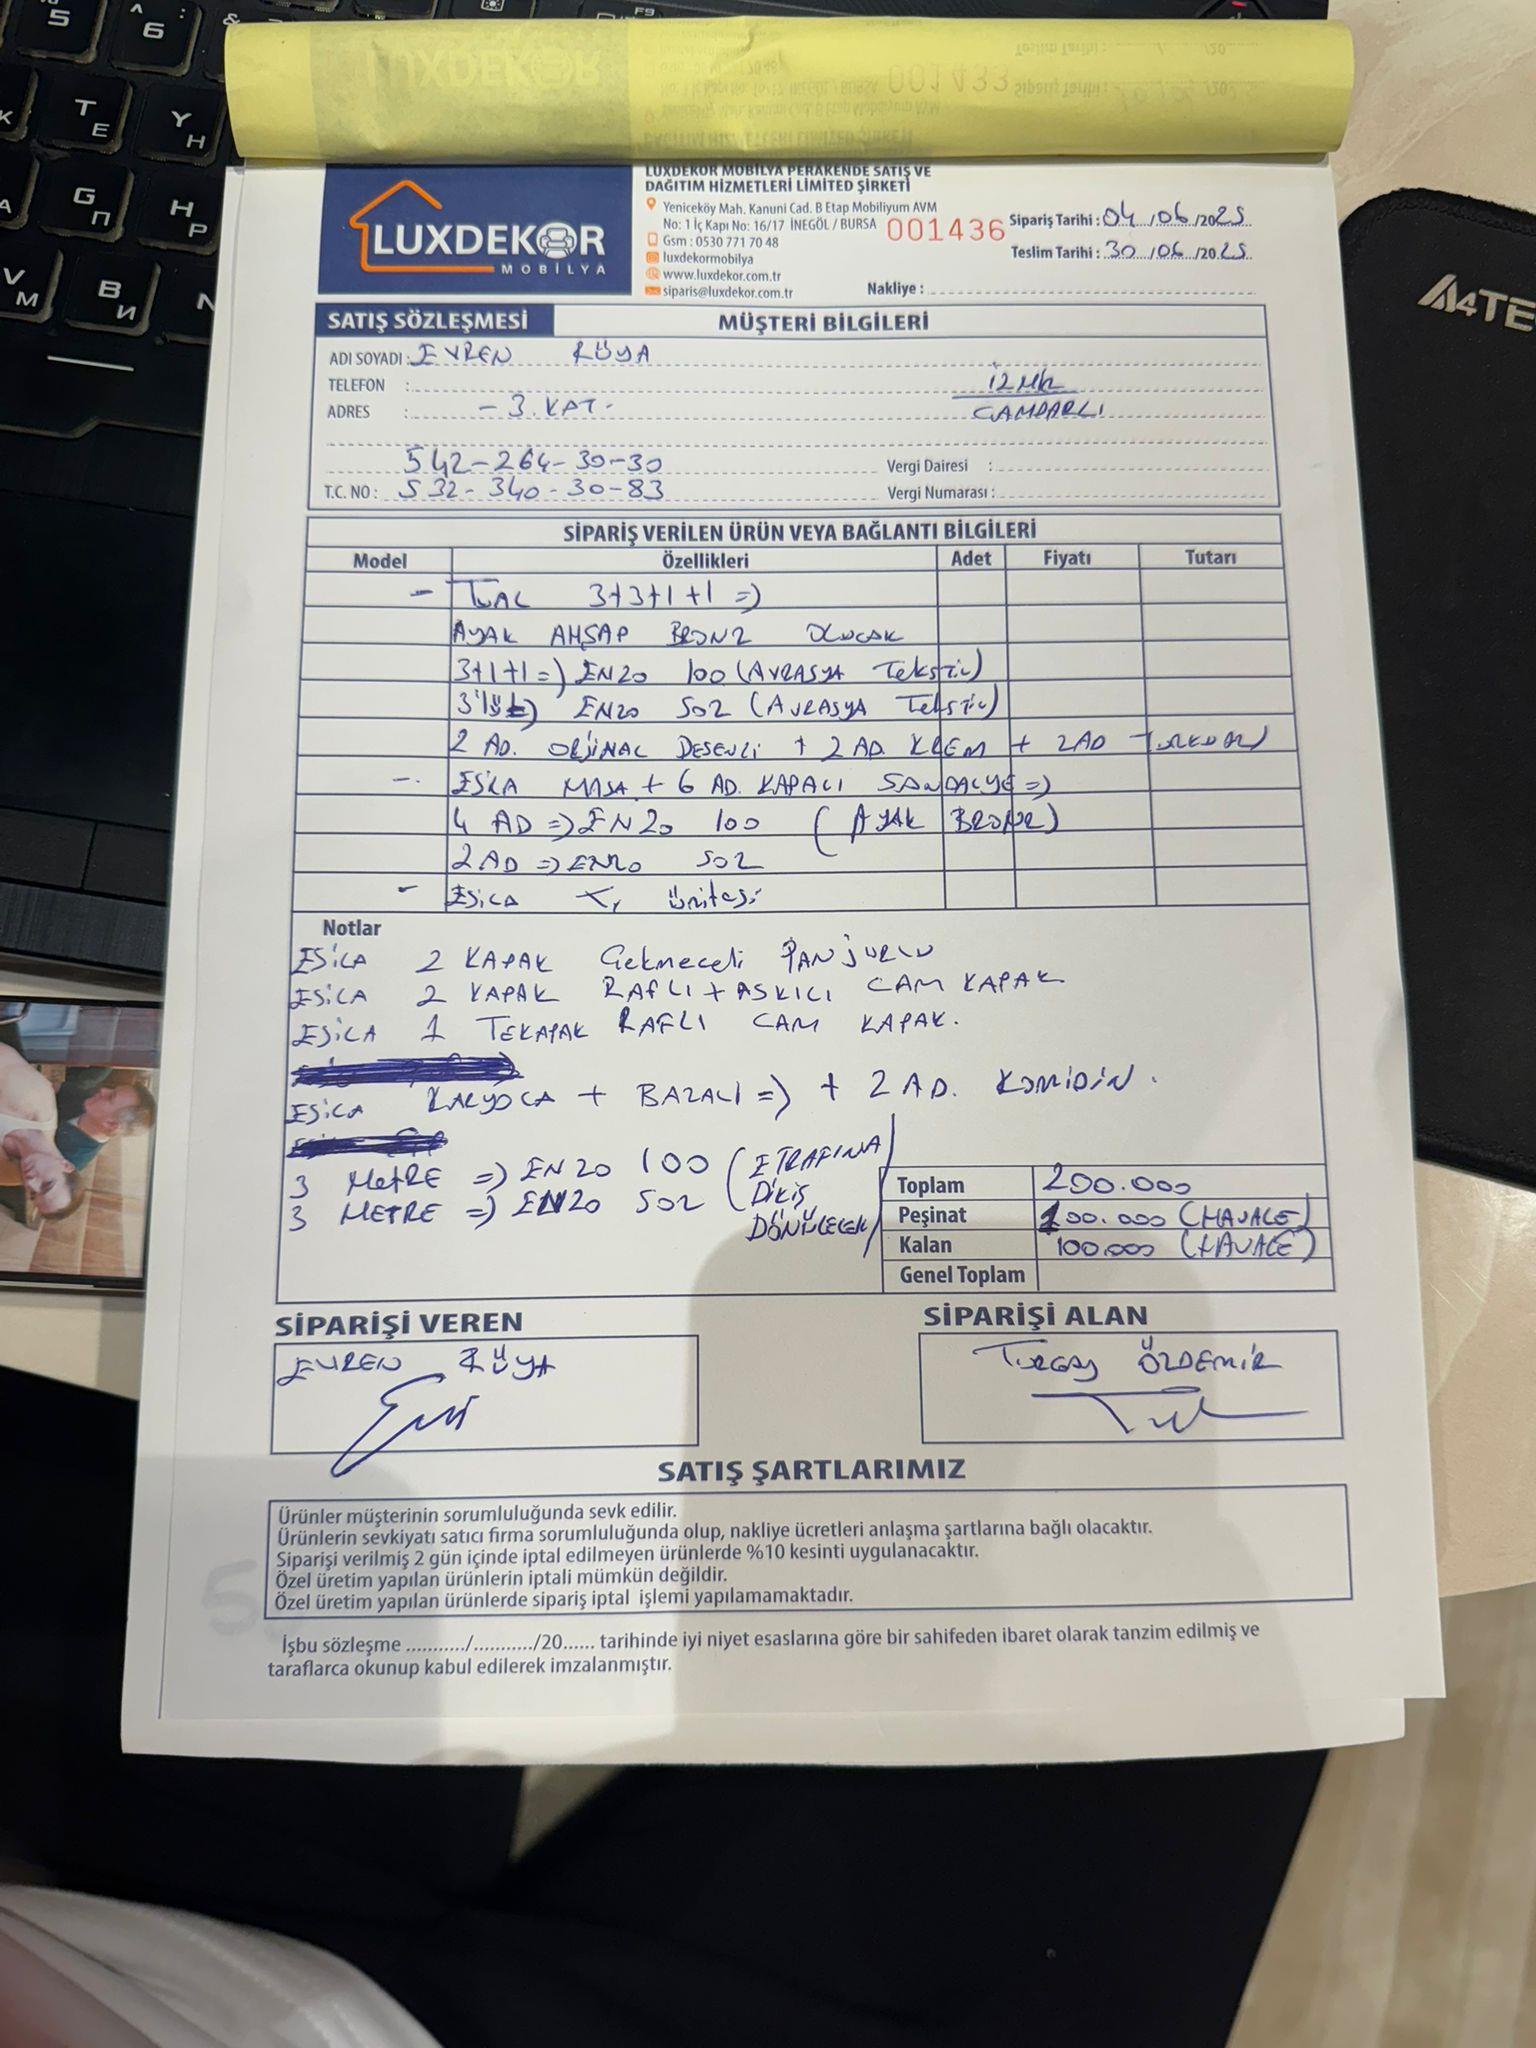 LUXDEKOR
001433
Teslim Tarihi : /20
Sipariş Tarihi :
LUXDEKOR
MOBİLYA
LUXDEKOR MOBİLYA PERAKENDE SATIŞ VE
DAĞITIM HİZMETLERİ LİMİTED ŞİRKETİ
Yeniceköy Mah. Kanuni Cad. B Etap Mobiliyum AVM
No: 1 İç Kapı No: 16/17 İNEGÖL / BURSA
Gsm : 0530 771 70 48
luxdekormobilya
www.luxdekor.com.tr
siparis@luxdekor.com.tr
001436
Sipariş Tarihi : 04 /06 /2025
Teslim Tarihi : 30 /06 /2025
Nakliye :
SATIŞ SÖZLEŞMESİ MÜŞTERİ BİLGİLERİ
ADI SOYADI : EVREN RÜYA
TELEFON : İZMİR
ADRES : - 3. KAT - ÇANDARLI
542-264-30-30 Vergi Dairesi :
T.C. NO : 532-340-30-83 Vergi Numarası :
SİPARİŞ VERİLEN ÜRÜN VEYA BAĞLANTI BİLGİLERİ
Model Özellikleri Adet Fiyatı Tutarı
- TUAL 3+3+1+1 =)
AYAK AHŞAP BRONZ OLUCAK
3+1+1 =) ENZO 100 (AVRASYA TEKSTİL)
3'lü =) ENZO 502 (AVRASYA TEKSTİL)
2 AD. ORJİNAL DESENLİ + 2 AD. KREM + 2 AD
- ESİLA MASA + 6 AD. KAPALI SANDALYE =)
4 AD =) ENZO 100 (AYAK BRONZ)
2 AD =) ENZO 502
- ESİLA TV ÜNİTESİ
Notlar
ESİLA 2 KAPAK ÇEKMECELİ PANJURLU
ESİLA 2 KAPAK RAFLI + ASKILI CAM KAPAK
ESİLA 1 TEKAPAK RAFLI CAM KAPAK.
ESİLA KARYOLA + BAZALI =) + 2 AD. KOMİDİN.
3 METRE =) ENZO 100 (ETRAFINA
3 METRE =) ENZO 502 DİKİŞ
DÖNÜLECEK)
Toplam 200.000
Peşinat 100.000 (HAVALE)
Kalan 100.000 (HAVALE)
Genel Toplam
SİPARİŞİ VEREN SİPARİŞİ ALAN
EVREN RÜYA TURGAY ÖZDEMİR
SATIŞ ŞARTLARIMIZ
Ürünler müşterinin sorumluluğunda sevk edilir.
Ürünlerin sevkiyatı satıcı firma sorumluluğunda olup, nakliye ücretleri anlaşma şartlarına bağlı olacaktır.
Siparişi verilmiş 2 gün içinde iptal edilmeyen ürünlerde %10 kesinti uygulanacaktır.
Özel üretim yapılan ürünlerin iptali mümkün değildir.
Özel üretim yapılan ürünlerde sipariş iptal işlemi yapılamamaktadır.
İşbu sözleşme .........../.........../20...... tarihinde iyi niyet esaslarına göre bir sahifeden ibaret olarak tanzim edilmiş ve
taraflarca okunup kabul edilerek imzalanmıştır.
A4TE
5
6
F9
T
E
Y
Н
G
П
H
Р
V
М
B
И
N